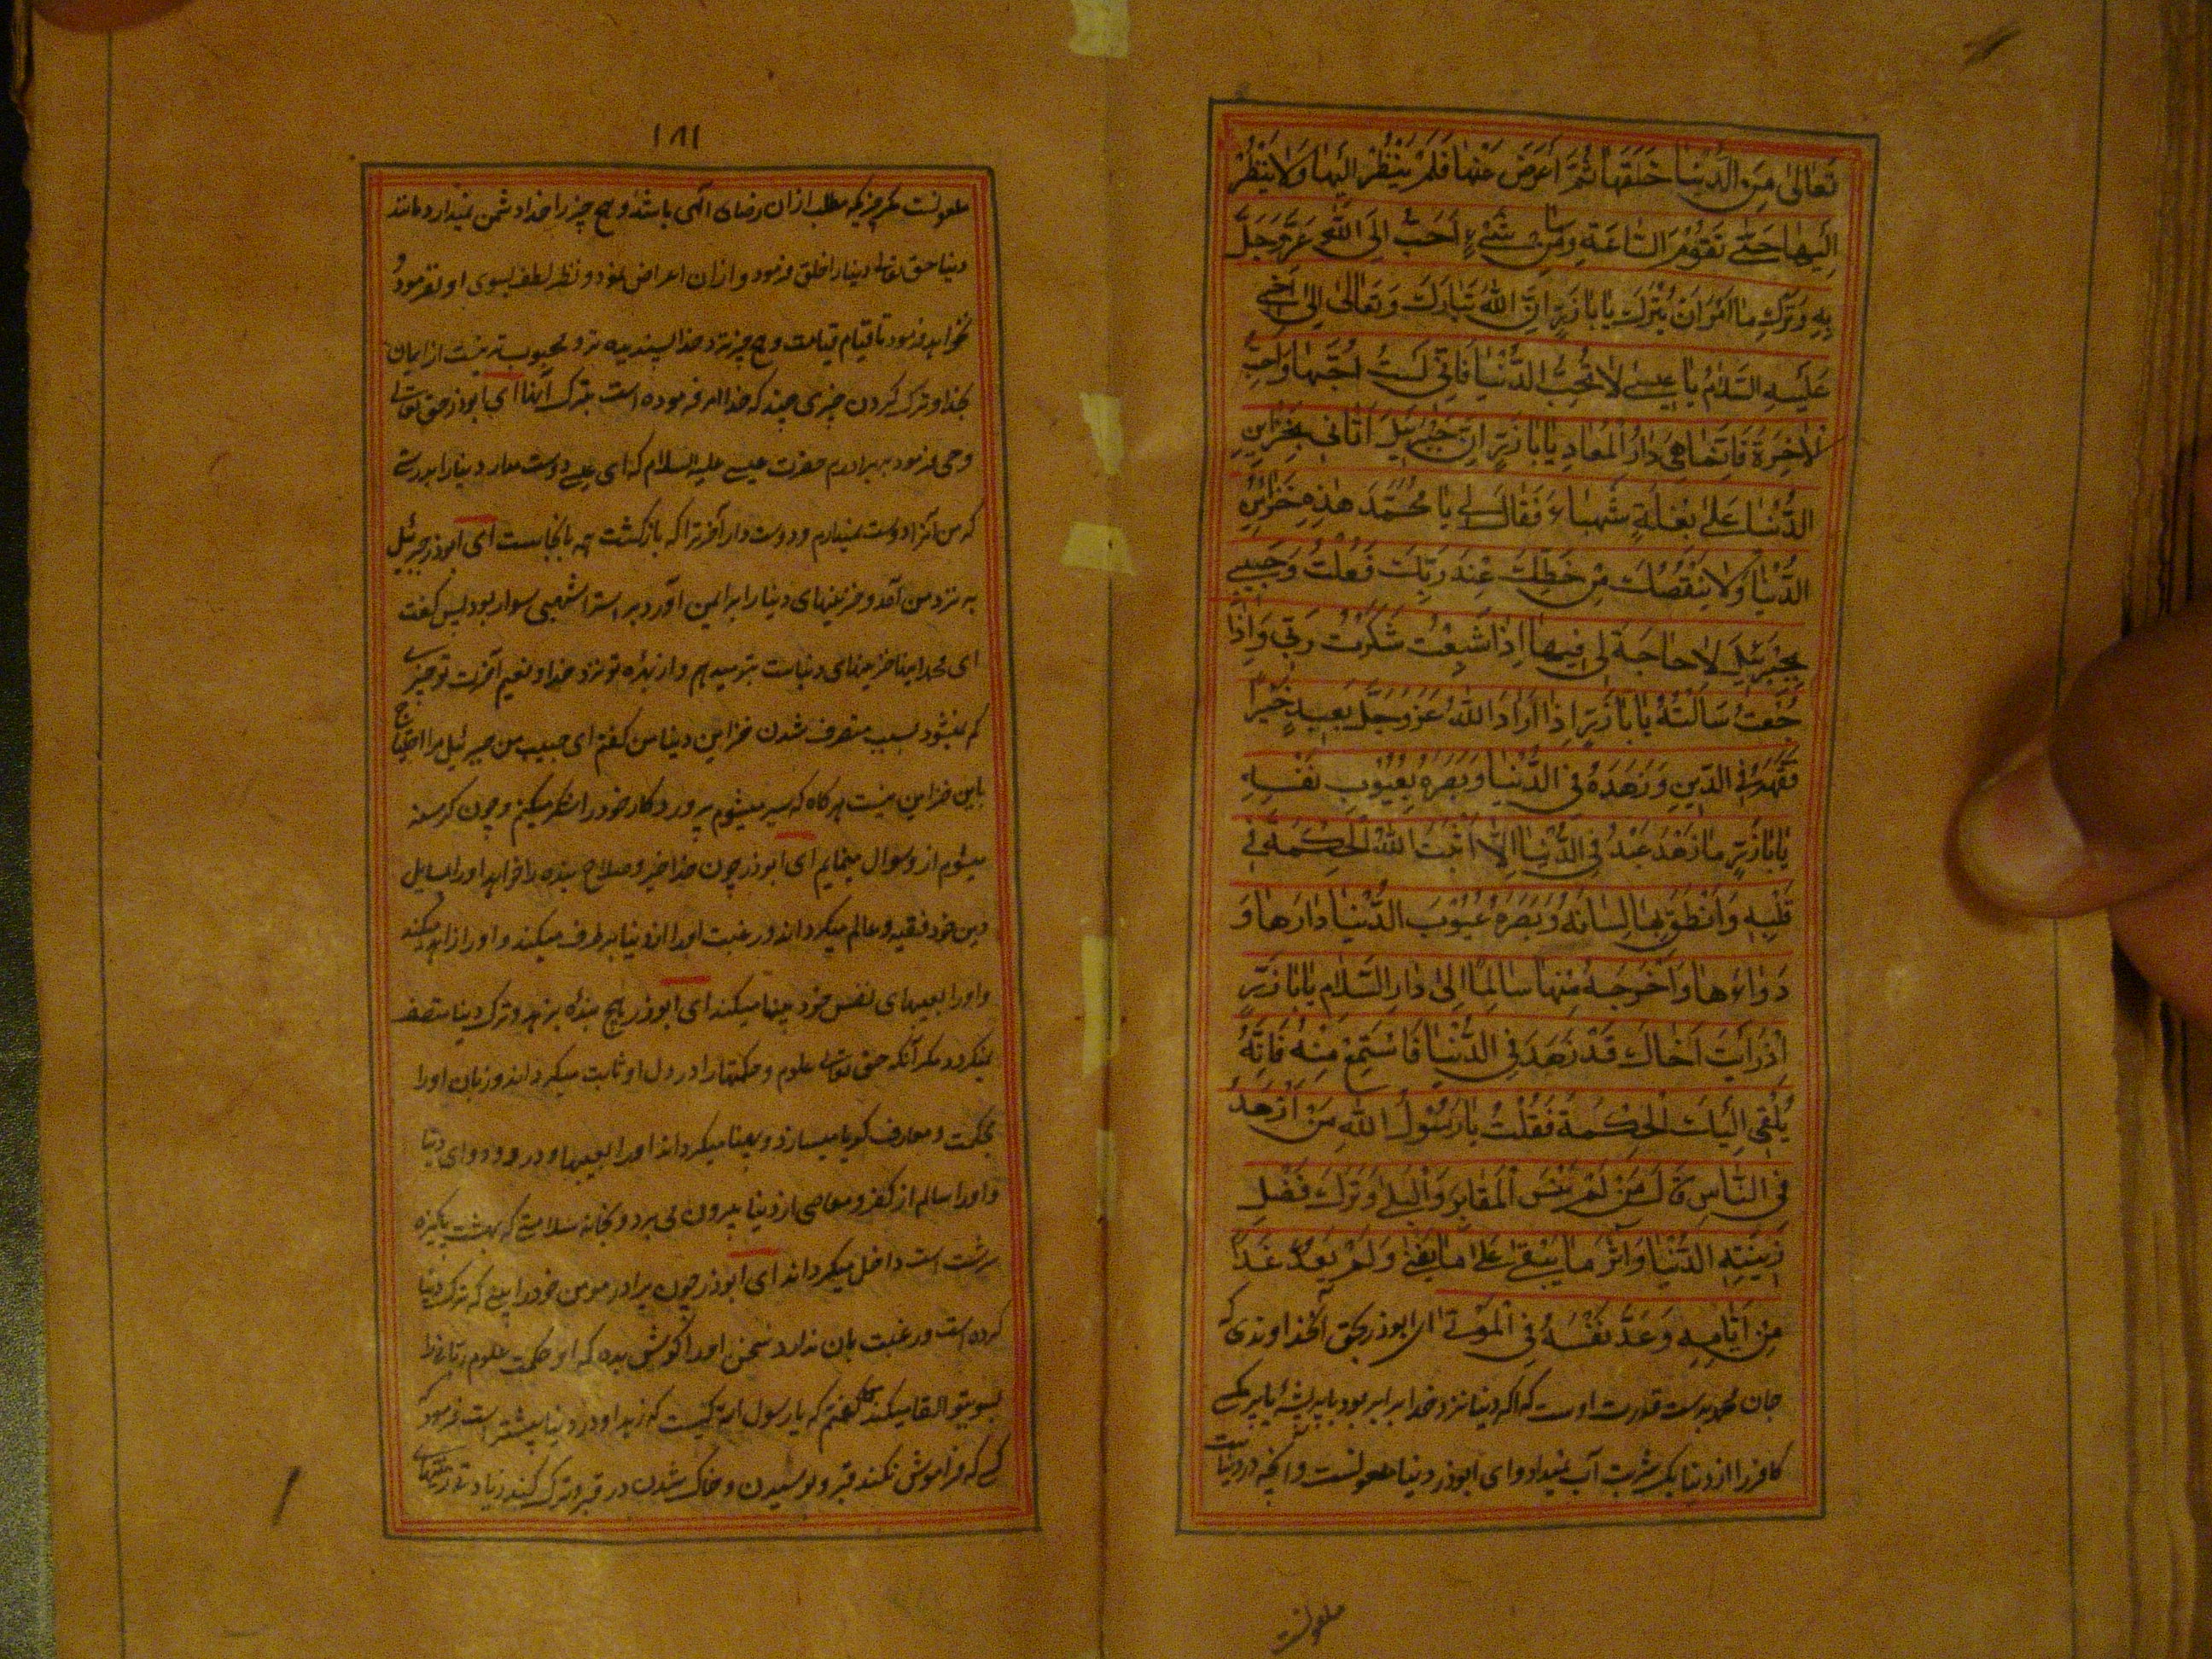 تَعَالىٰ مِنَ الدُّنْيَا خَلَقَهَا ثُمَّ اَعْرَضَ عَنْهَا فَلَمْ يَنْظُرْ اِلَيْهَا وَلَا يَنْظُرُ
اِلَيْهَا حَتّٰى تَقُوْمَ السَّاعَةِ وَمَا مِنْ شَىْءٍ اَحَبَّ اِلَى اللّٰهِ عَزَّ وَجَلَّ
بِهِ وَتَرْكِ مَا اَمَرَ اَنْ يُتْرَكَ يَا بَا ذَرٍّ اِنَّ اللّٰهَ تَبَارَكَ وَتَعَالىٰ اِلىٰ اَخِى
عَلَيْهِ السَّلَامُ يَا عِيسٰى لَا تُحِبَّ الدُّنْيَا فَاِنِّى لَسْتُ اُحِبُّهَا وَاَحِبَّ
الْاٰخِرَةَ فَاِنَّمَا هِىَ دَارُ الْمَعَادِ يَا بَا ذَرٍّ اِنَّ جَبْرَئِيلَ اَتَانِى بِخَزَائِنِ
الدُّنْيَا عَلىٰ بَغْلَةٍ شَهْبَاءَ فَقَالَ لِى يَا مُحَمَّدُ هٰذِهِ خَزَائِنُ
الدُّنْيَا وَلَا يَنْقُصُكَ مِنْ حَظِّكَ عِنْدَ رَبِّكَ فَقُلْتُ حَبِيبِى
جَبْرَئِيلَ لَا حَاجَةَ لِى فِيهَا اِذَا شَبِعْتُ شَكَرْتُ رَبِّى وَاِذَا
جُعْتُ سَاَلْتُهُ يَا بَا ذَرٍّ اِذَا اَرَادَ اللّٰهُ عَزَّ وَجَلَّ بِعَبْدٍ خَيْرًا
فَقَّهَهُ فِى الدِّينِ وَزَهَّدَهُ فِى الدُّنْيَا وَبَصَّرَهُ بِعُيُوْبِ نَفْسِهِ
يَا بَا ذَرٍّ مَا زَهَدَ عَبْدٌ فِى الدُّنْيَا اِلَّا اَثْبَتَ اللّٰهُ الْحِكْمَةَ فِى
قَلْبِهِ وَاَنْطَقَ بِهَا لِسَانَهُ وَبَصَّرَهُ عُيُوْبَ الدُّنْيَا وَدَاءَهَا وَ
دَوَاءَهَا وَاَخْرَجَهُ مِنْهَا سَالِمًا اِلىٰ دَارِ السَّلَامِ يَا بَا ذَرٍّ
اِذَا رَاَيْتَ اَخَاكَ قَدْ زَهَدَ فِى الدُّنْيَا فَاسْتَمِعْ مِنْهُ فَاِنَّهُ
يُلْقِى اِلَيْكَ الْحِكْمَةَ فَقُلْتُ يَا رَسُوْلَ اللّٰهِ مَنْ اَزْهَدُ
فِى النَّاسِ قَالَ مَنْ لَمْ يَنْسَ الْمَقَابِرَ وَالْبِلىٰ وَتَرَكَ فَضْلَ
زِينَةِ الدُّنْيَا وَاٰثَرَ مَا يَبْقىٰ عَلىٰ مَا يَفْنىٰ وَلَمْ يَعُدَّ غَدًا
مِنْ اَيَّامِهِ وَعَدَّ نَفْسَهُ فِى الْمَوْتىٰ اى ابوذر بحق آنخداوندى كه
جان محمد بدست قدرت اوست كه اكر دنيا نزد خدا برابر بود با پر پشه يا پر مكسى
كافر را از دنيا يك شربت آب نميداد و اى ابوذر دنيا ملعونست و آنچه در دنياست
ملعونست
١٨١
ملعونست مكر چيزيكه مطلب ازان رضاى الهى باشد و هيچ چيز را خدا دشمن نميدارد مانند
دنيا حق تعالى دنيا را خلق فرمود و ازان اعراض نمود و نظر لطف بسوى او نفرمود و
نخواهد فرمود تا قيام قيامت و هيچ چيز نزد خدا پسنديده تر و محبوب تر نيست از ايمان
بخدا و ترك كردن چيزى چند كه خدا امر فرموده است بترك آنها اى ابوذر حق تعالى
وحى فرمود ببرادرم حضرت عيسى عليه السلام كه اى عيسى دوست مدار دنيا را بدرستى
كه من آنرا دوست نميدارم و دوست دار آخرت را كه بازكشت همه بانجاست اى ابوذر جبرئيل
به نزد من آمد و خزينهاى دنيا را براى من آورد بر استر اشهبى سوار بود پس كفت
اى محمد اينها خزينهاى دنياست بتو ميدهم و از بهره تو نزد خدا و نعيم آخرت تو چيزى
كم نميشود بسبب متصرف شدن خزاين دنيا من كفتم اى حبيب من جبرئيل مرا احتياج
باين خزاين نيست هركاه كه سير ميشوم پروردكار خود را شكر ميكنم و چون كرسنه
ميشوم از و سوال مينمايم اى ابوذر چون خدا خير و صلاح بنده را خواهد او را بمسايل
دين خود فقيه و عالم ميكرداند و رغبت او را از دنيا برطرف ميكند و او را زاهد ميكند
و او را بعيبهاى نفس خود بينا ميكند اى ابوذر هيچ بنده بزهد و ترك دنيا متصف
نميكردد مكر آنكه حق تعالى علوم و حكمتها را در دل او ثابت ميكرداند و زبان او را
بحكمت و معارف كويا ميسازد و بينا ميكرداند او را بعيبها و درد و دواى دنيا
و او را سالم از كفر و معاصى از دنيا بيرون مى برد و بخانه سلامتى كه بهشت پاكيزه
سرشت است داخل ميكرداند اى ابوذر چون برادر مومن خود را بينى كه ترك دنيا
كرده است و رغبت بان ندارد سخن او را كوش بده كه او حكمت علوم ربانى را
بسوى تو القا ميكند كفتم كه يا رسول الله كيست كه زهد او در دنيا بيشتر است فرمود كه
كسى كه فراموش نكند قبر و پوسيدن و خاك شدن در قبر و ترك كند زيادتى زينتهاى